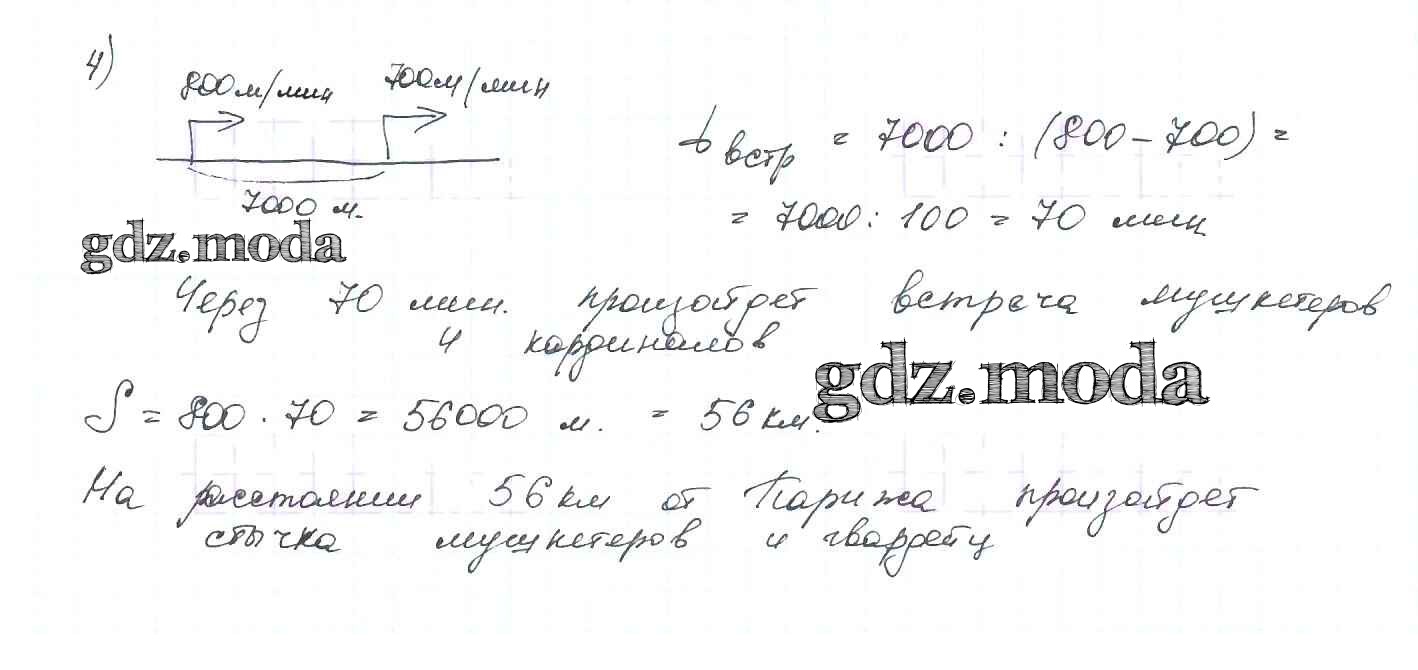 4)
800м/мин 700м/мин
7000 м.
t встр = 7000 : (800 - 700) =
= 7000 : 100 = 70 мин
gdz.moda
Через 70 мин. произойдет встреча мушкетеров
и кардиналов
gdz.moda
S = 800 · 70 = 56000 м. = 56 км.
На расстоянии 56 км от Парижа произойдет
стычка мушкетеров и гвардейц